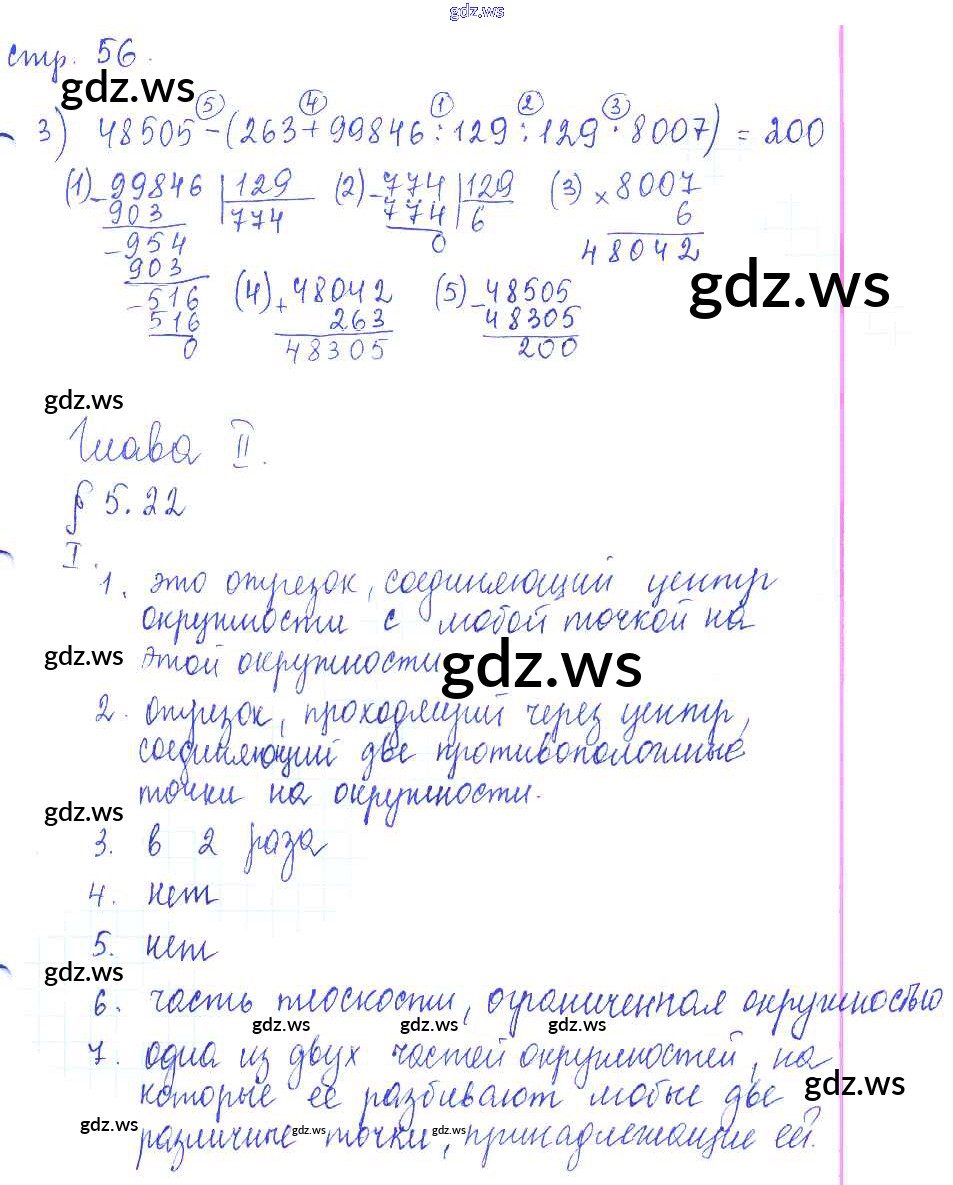 gdz.ws
стр. 56.
gdz.ws
3) 48505 - (263 + 99846 : 129 : 129 · 8007) = 200
⑤ ④ ① ② ③
(1) - 99846 | 129 (2) - 774 | 129 (3) × 8007
903 774 774 6 6
- 954 0 48042
903
- 516 (4) + 48042 (5) - 48505
516 263 48305
0 48305 200
gdz.ws
gdz.ws
Глава II.
§ 5.22
I.
1. это отрезок, соединяющий центр
окружности с любой точкой на
этой окружности
gdz.ws
gdz.ws
2. отрезок, проходящий через центр,
соединяющий две противоположные
точки на окружности.
gdz.ws
3. в 2 раза
4. нет
5. нет
gdz.ws
6. часть плоскости, ограниченная окружностью
gdz.ws gdz.ws gdz.ws
7. одна из двух частей окружностей, на
которые её разбивают любые две
gdz.ws
различные точки, принадлежащие ей.
gdz.ws gdz.ws gdz.ws